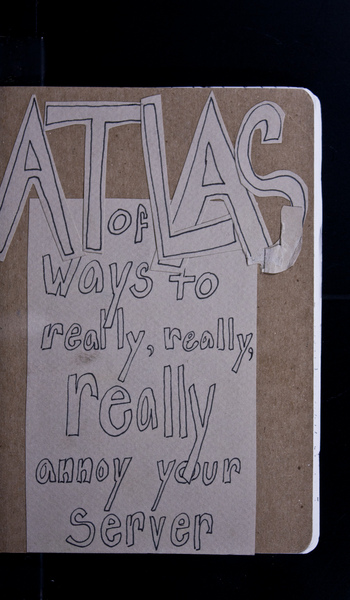 ATLAS
of
ways to
really, really,
really
annoy your
server